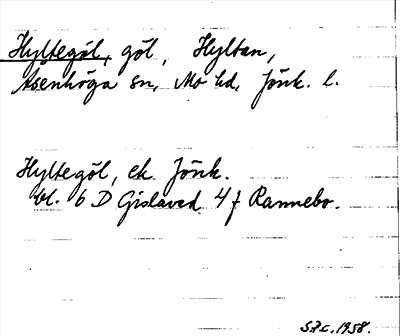 Hyltegöl, göl, Hyltan,
Åsenhöga sn, Mo hd, Jönk. l.
Hyltegöl, ek. Jönk.
bl. 6 D Gislaved 4 f Rannebo.
S.P.C. 1958.